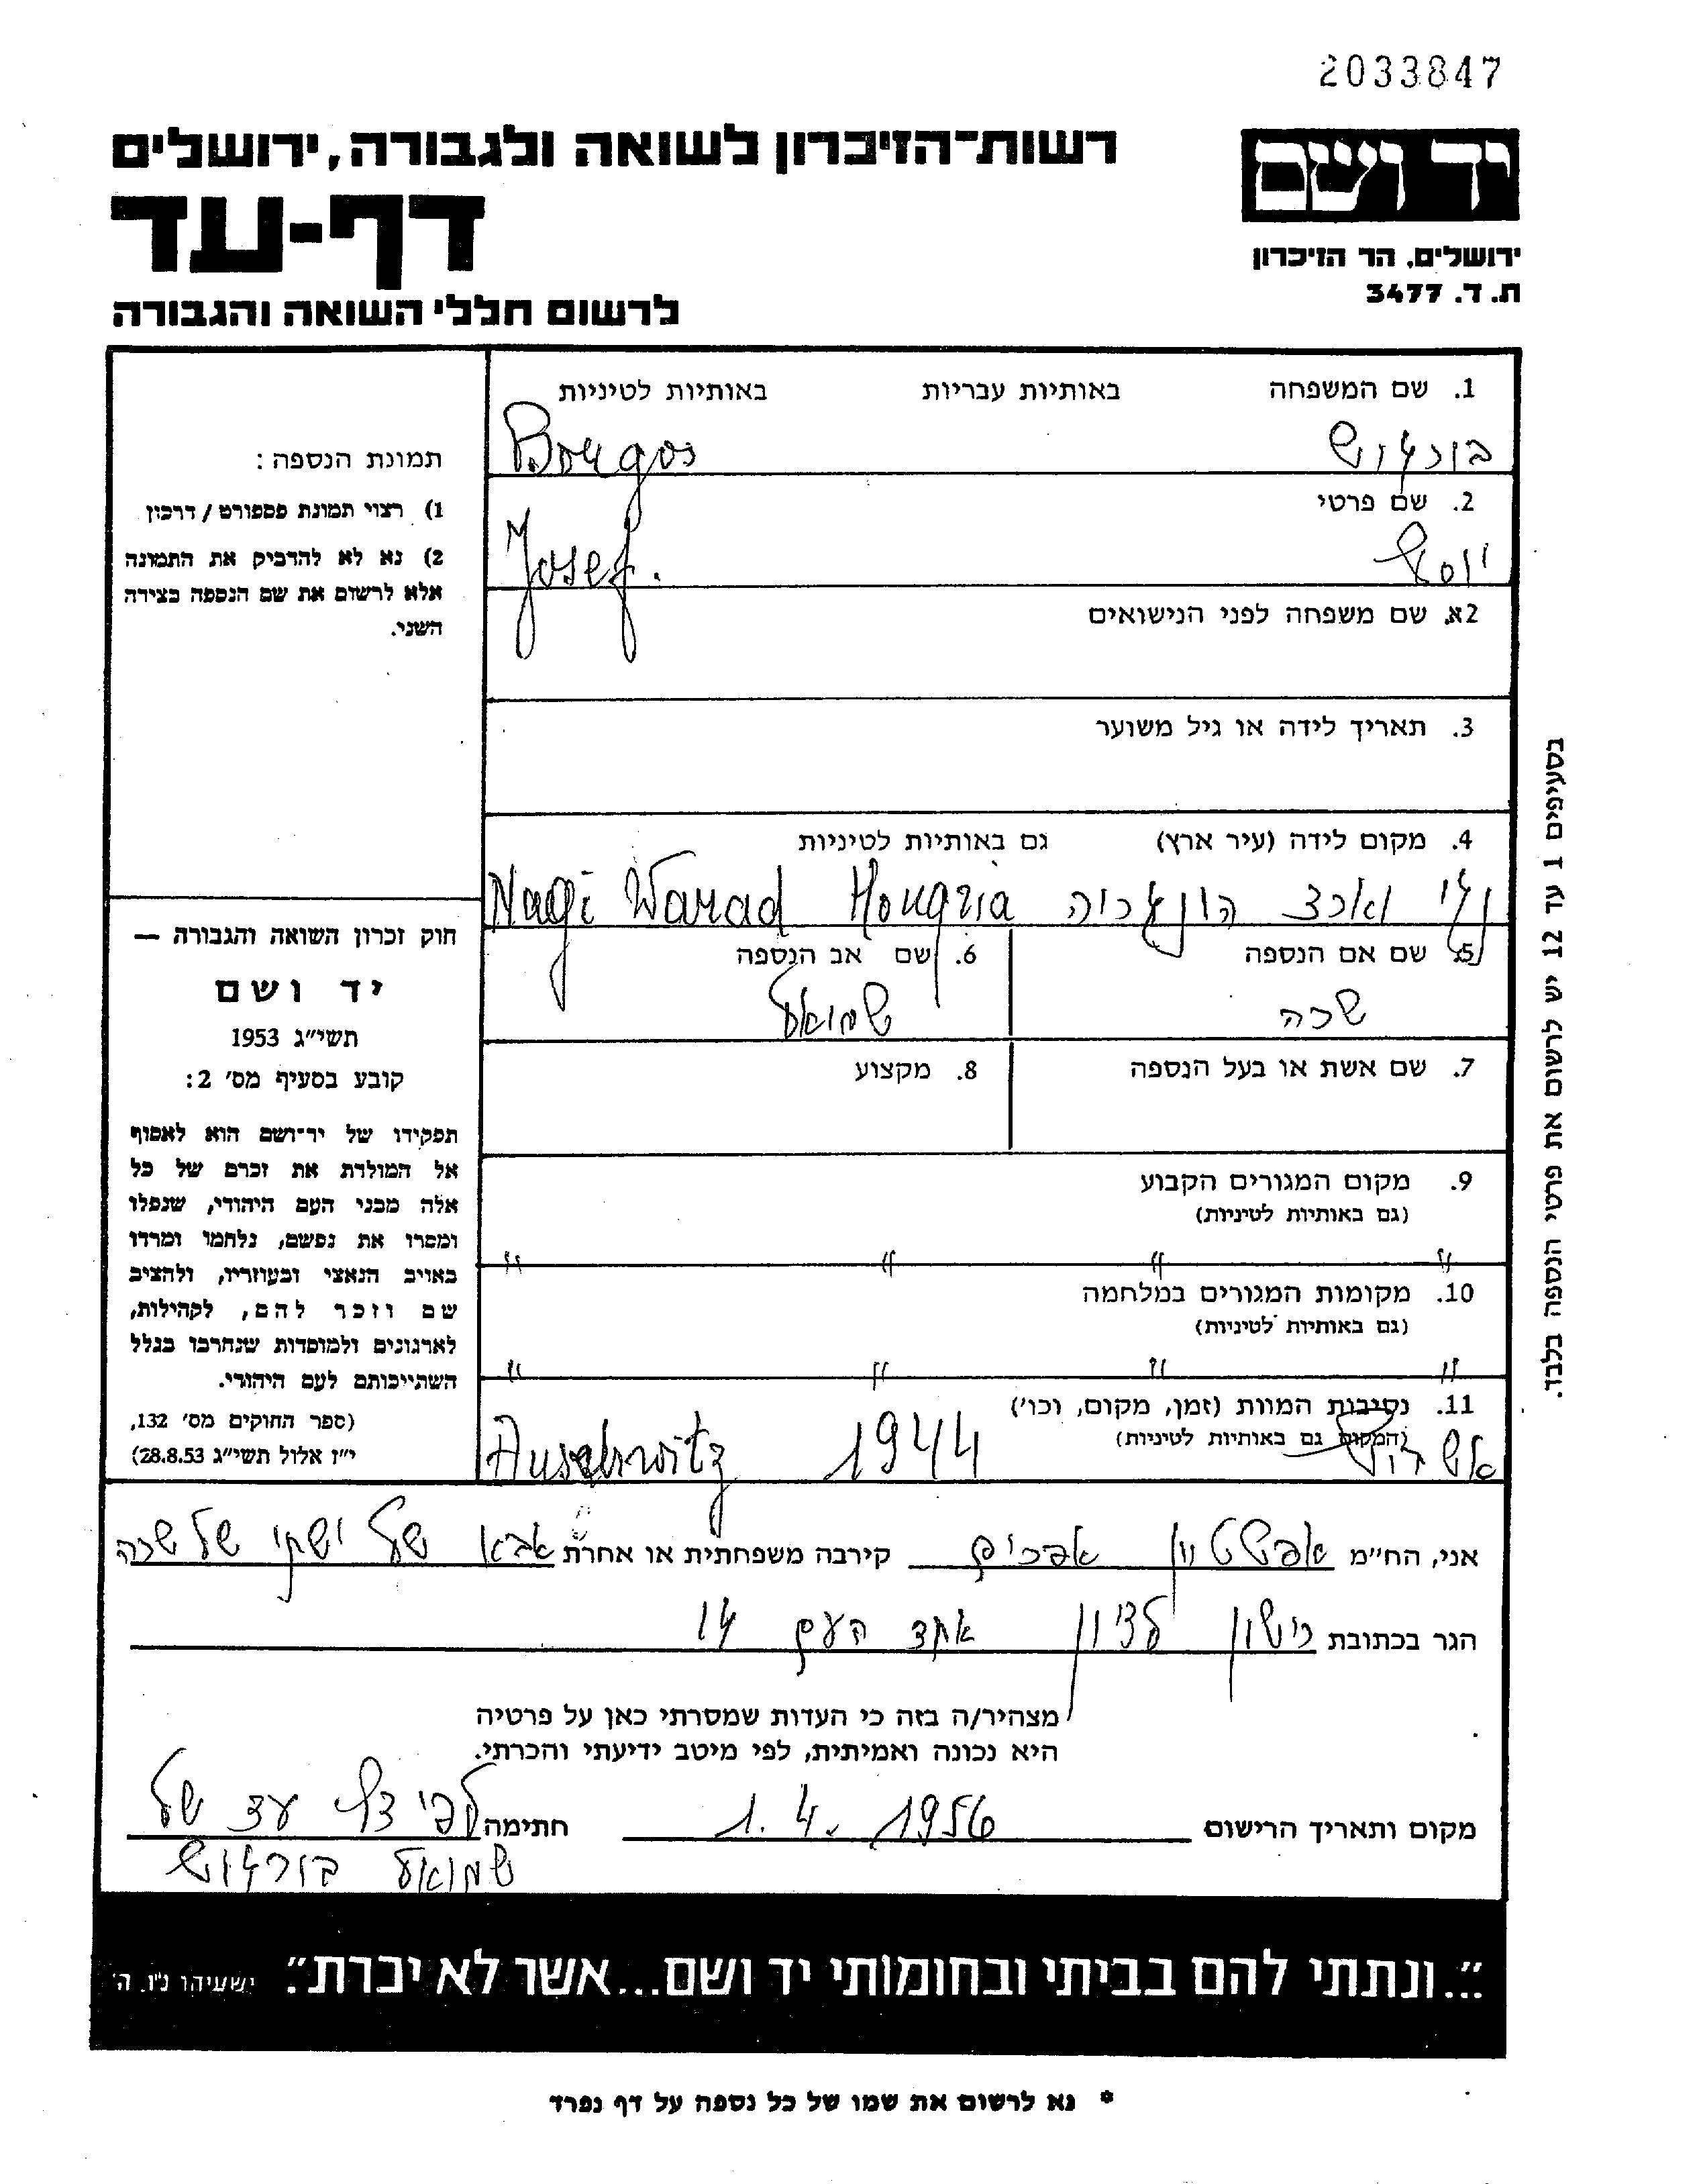 2033847
יד ושם
רשות־הזיכרון לשואה ולגבורה, ירושלים
דף-עד
ירושלים, הר הזיכרון
ת. ד. 3477
לרשום חללי השואה והגבורה
1. שם המשפחה באותיות עבריות באותיות לטיניות
בורגוש Bourgos
2. שם פרטי
יוסף Josef.
2א. שם משפחה לפני הנישואים
3. תאריך לידה או גיל משוער
4. מקום לידה (עיר ארץ) גם באותיות לטיניות
נגי וארצ הונגריה Nagi Warad Hongria
5. שם אם הנספה 6. שם אב הנספה
שרה שמואל
7. שם אשת או בעל הנספה 8. מקצוע
9. מקום המגורים הקבוע
(גם באותיות לטיניות)
" " " "
10. מקומות המגורים במלחמה
(גם באותיות לטיניות)
" " " "
11. נסיבות המוות (זמן, מקום, וכו')
(המקום גם באותיות לטיניות)
1944 Auschwitz
תמונת הנספה:
1) רצוי תמונת פספורט / דרכון
2) נא לא להדביק את התמונה
אלא לרשום את שם הנספה בצידה
השני.
חוק זכרון השואה והגבורה —
יד ושם
תשי"ג 1953
קובע בסעיף מס' 2:
תפקידו של יד־ושם הוא לאסוף
אל המולדת את זכרם של כל
אלה מבני העם היהודי, שנפלו
ומסרו את נפשם, נלחמו ומרדו
באויב הנאצי ובעוזריו, ולהציב
שם וזכר להם, לקהילות,
לארגונים ולמוסדות שנחרבו בגלל
השתייכותם לעם היהודי.
(ספר החוקים מס' 132,
י"ז אלול תשי"ג 28.8.53)
בסעיפים 1 עד 12 יש לרשום את פרטי הנספה בלבד.
אני, הח"מ אפשטיין אפרים קירבה משפחתית או אחרת אבא של של שרה
הגר בכתובת ראשון לציון אחד העם 14
מצהיר/ה בזה כי העדות שמסרתי כאן על פרטיה
היא נכונה ואמיתית, לפי מיטב ידיעתי והכרתי.
מקום ותאריך הרישום 1.4.1956 חתימה לפי דף עד של
שמואל בורגוש
"...ונתתי להם בביתי ובחומותי יד ושם...אשר לא יכרת". ישעיהו נ"ו, ה'
* נא לרשום את שמו של כל נספה על דף נפרד